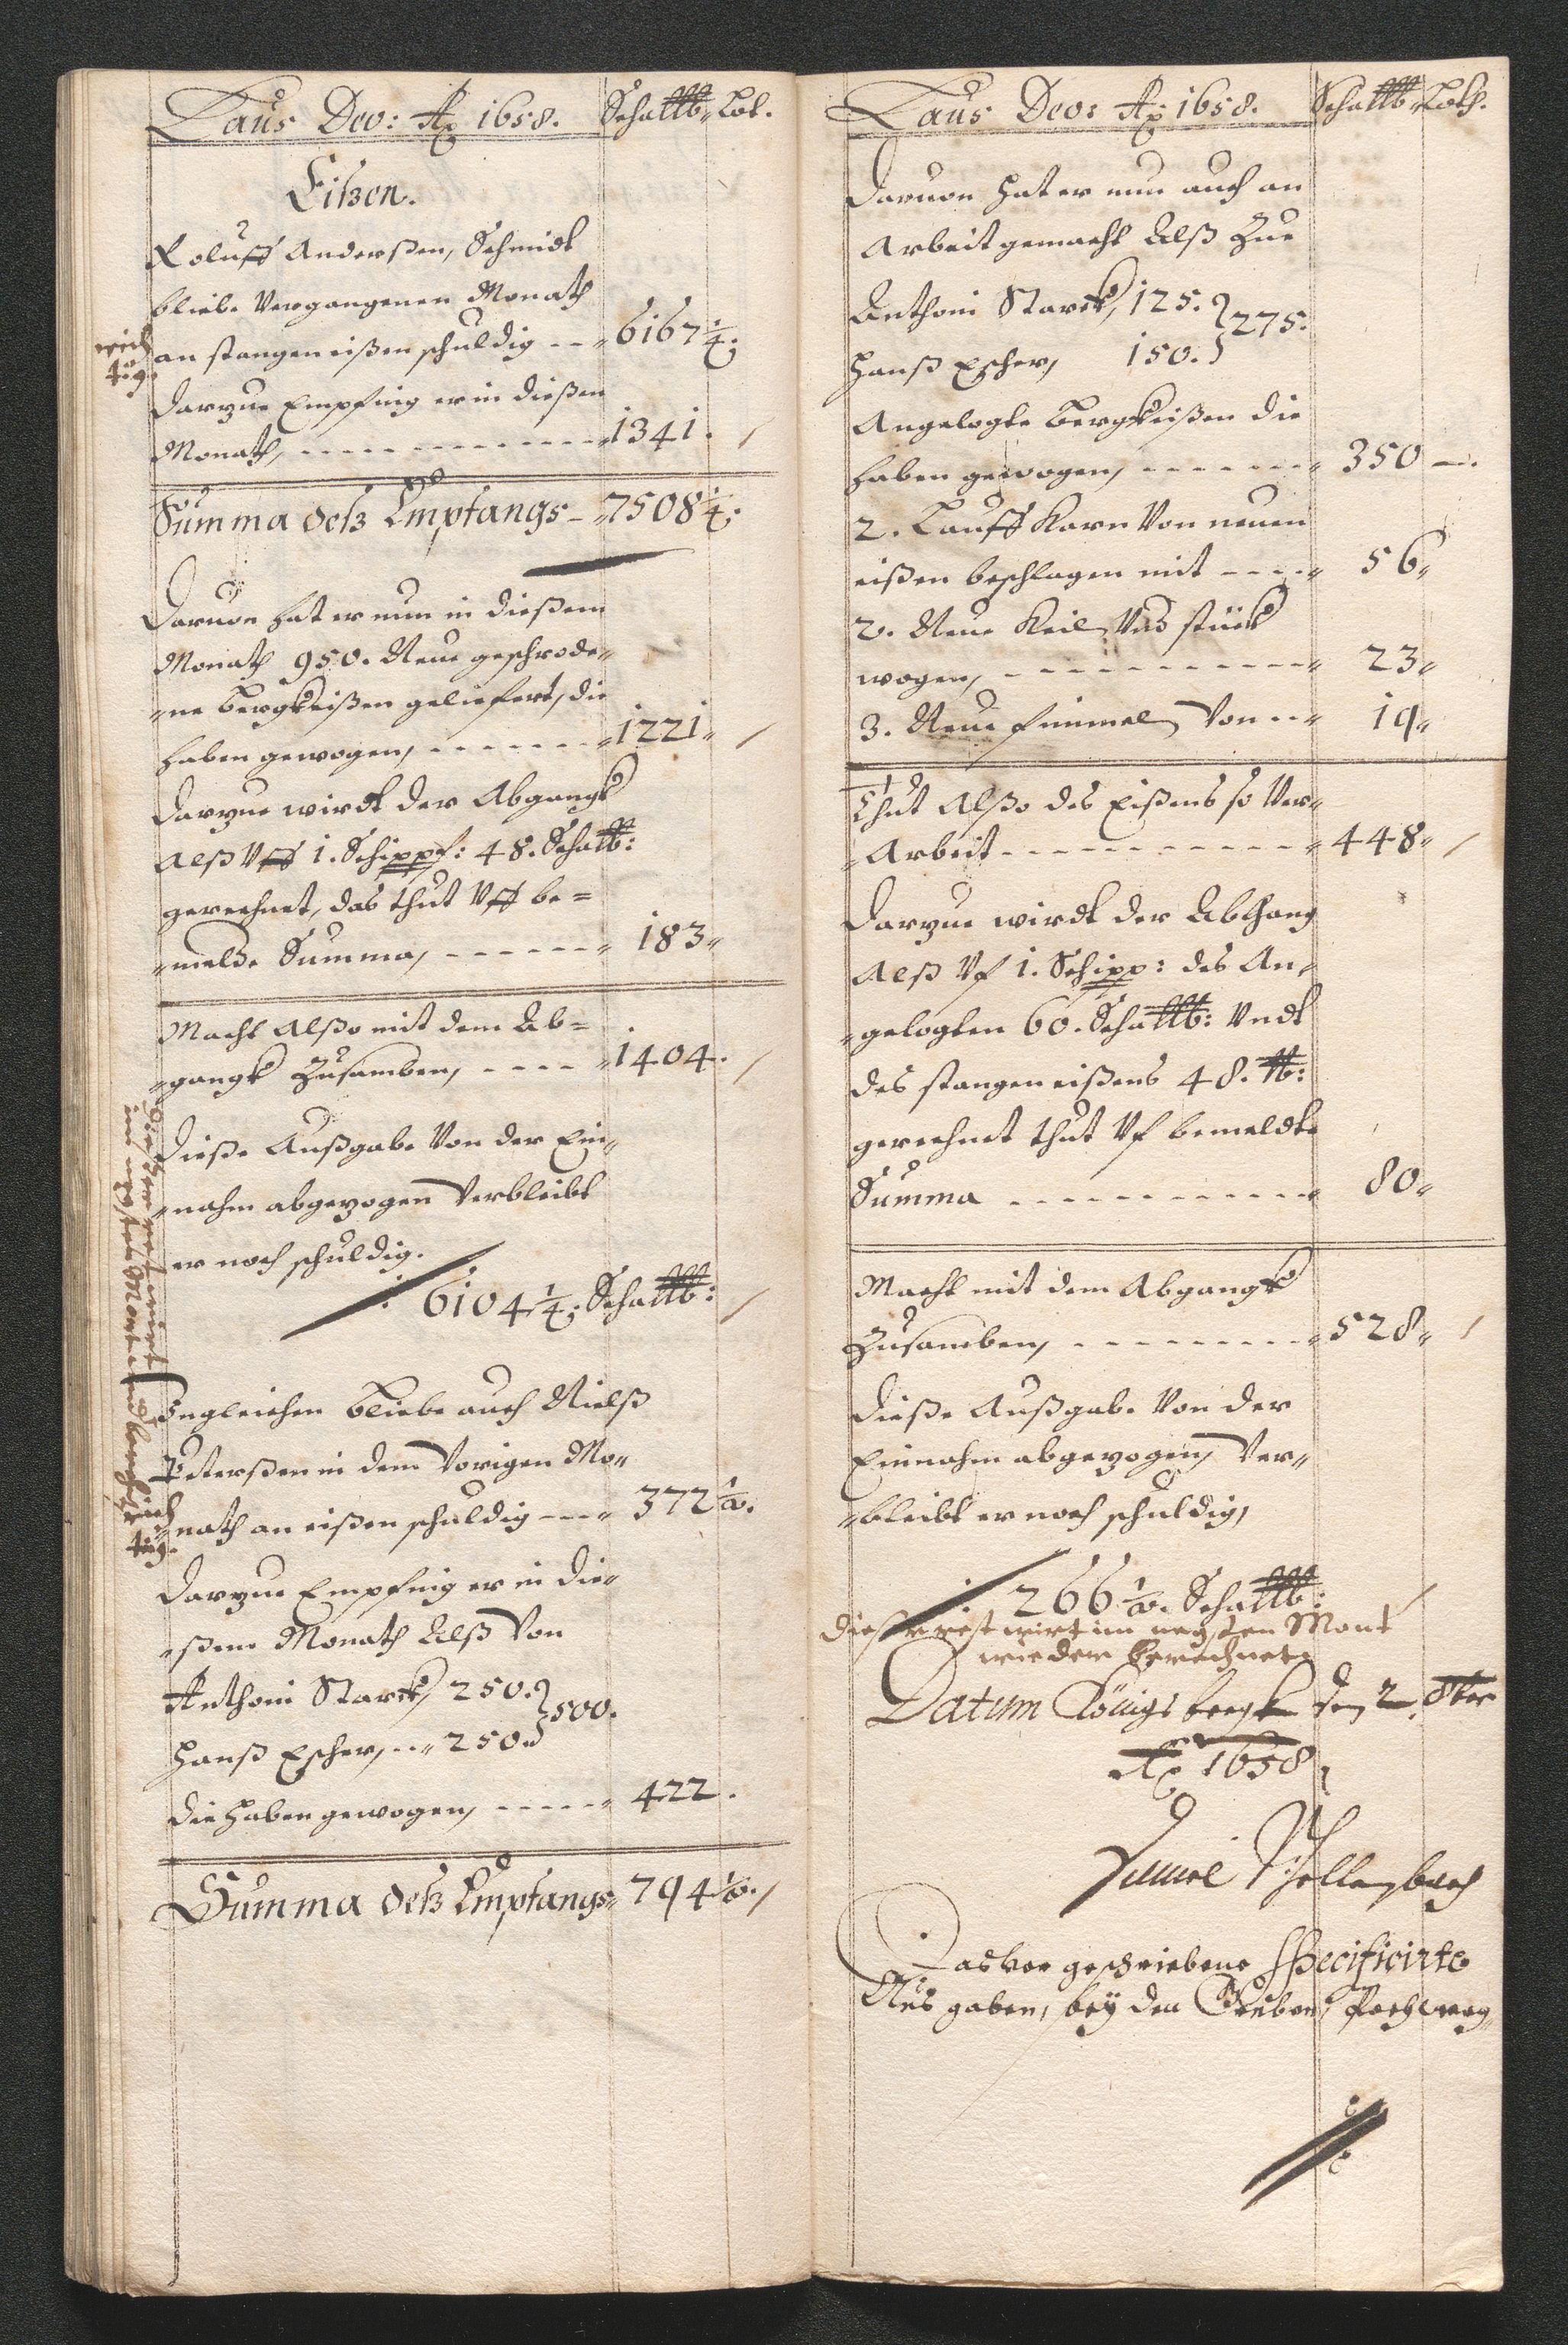 Laus Deo: Aō 1658. Schallb. Lot.
Eißen.
Roluff Anderßen, Schmidt
bliebe Vergangenen Monath
an stangen eißen schuldig --- 6167 1/4.
rich
tig.
Darzue Empfing er in dießen
Monath, ------------- 1341.
Summa deß Empfangs - 7508 1/4.
Daruon hat er nun in dießem
Monath 950. Neue geschrode„
„ne Bergkeißen geliefert, die
haben gewogen, ------- 1221„
Darzue wirdt der Abgangk
Alß Vff 1. Schippf: 48. Schalb:
gerechnet, das thut Vff be=
„melde Summa, ------ 183„
Macht Alßo mit dem Ab=
„gangk Zusamben, ---- 1404.
Dieße Außgabe Von der Ein„
„nahm abgezogen Verbleibt
er noch schuldig.
6104 1/4. Schallb:
Dießer rest wirt
im negsten Mont
Ingleichen bliebe auch Nielß
Peterßen in dem Vorigen Mo„
„nath an eißen schuldig --- 372 1/2.
rich
tig.
Darzue Empfing er in die„
„ßem Monath Alß Von
Anthoni Starck, 250.
Hanß Escher, -- 250. } 500.
die haben gewogen, ----- 422.
Summa deß Empfangs 794 1/2.
Laus Deo: Aō 1658. Schallb. Loth.
Daruon hat er nun auch an
Arbeit gemacht Alß Zue
Anthoni Starck, 125.
Hanß Escher, 150. } 275.
Angelogte Bergkeißen die
haben gewogen, ------- 350 —.
2. Lauff Karn Von neuen
eißen beschlagen mit ---- 56„
2. Neue Keil, Vnd stück
wogen, ------------ 23„
3. Neue fimmel, Von -- 19„
Thut Alßo des Eißens so Ver„
„Arbeit ------------ 448„
Darzue wirdt der Abgang
Alß Vf 1. Schipp: des An„
„gelogten 60. Schallb: Vndt
des stangen eißens 48. lb:
gerechnet thut Vf bemeldte
Summa ------------ 80„
Macht mit dem Abgangk
Zusamben, --------- 528„
Dieße Außgabe Von der
Einnahm abgezogen, Ver„
„bleibt er noch schuldig,
266 1/2. Schallb:
Dießer rest wirt im negsten Mont
wieder berechnet.
Datum Königsbergk den 2. 8ber
Aō 1658.
Das vor geschriebene Specificirte
Aus gaben, bey den Gruben, Pochwerg„